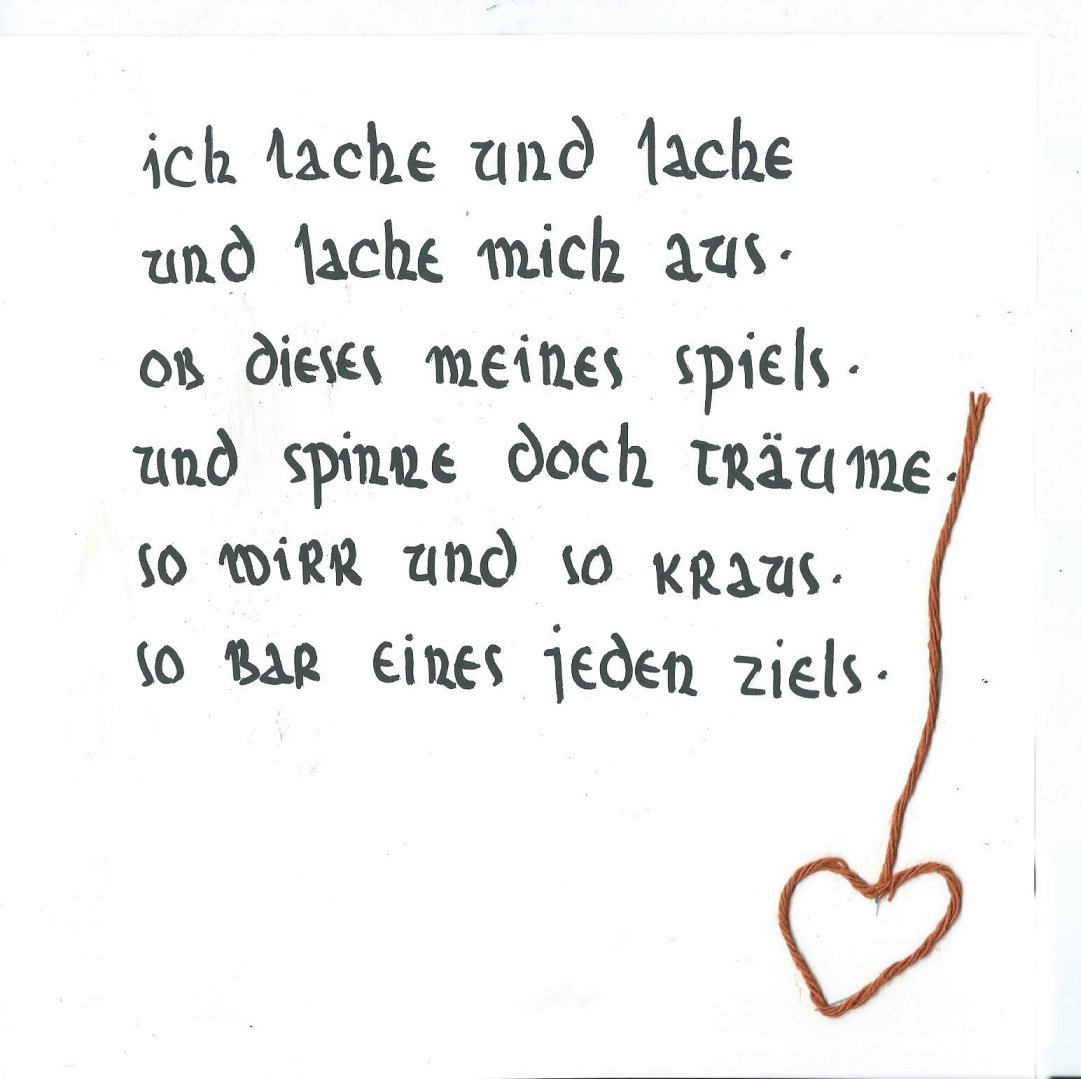 ich lache und lache
und lache mich aus.
ob dieses meines spiels.
und spinne doch träume.
so wirr und so kraus.
so bar eines jeden ziels.